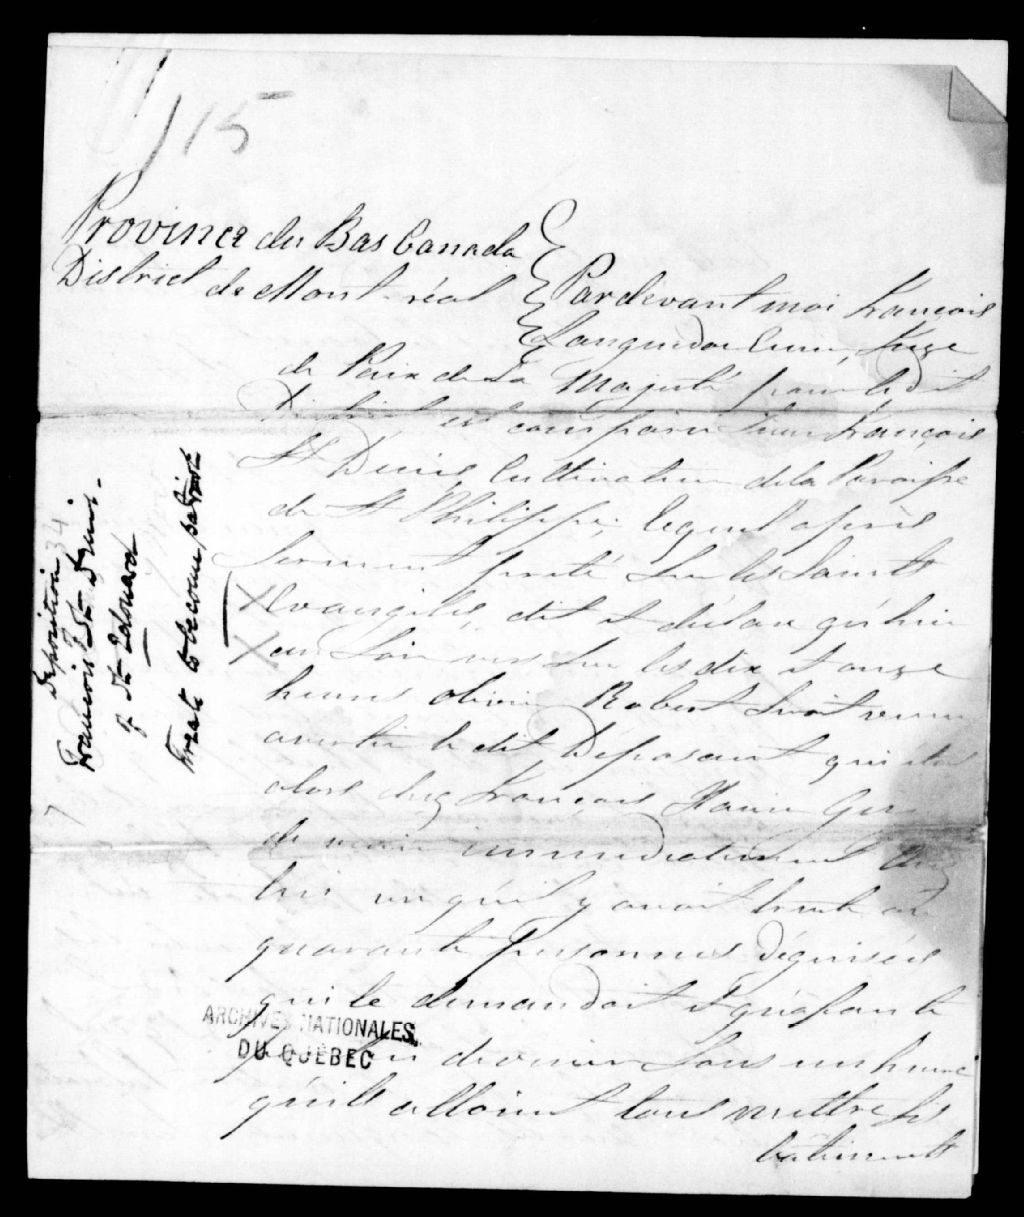 115
Province du Bas Canada
District de Montréal
Pardevant moi François
Languedoc Ecuier, Juge
de Paix de Sa Majesté pour le dit
District est comparu Sieur François
St Denis Cultivateur de la Paroisse
de St Philippe, lequel après
serment preté sur les Saints
Evangiles, dit et déclare qu'hier
au Soir vers les dix et onze
heures olivier Robert Seroit venu
avertir le dit Déposant qui étoit
alors chez François
de venir immediatement chez
lui vu qu'il y avoit trente ou
quarante personnes déguisées
qui le demandoit et qu'afaute
devenir Sous un heure
qu'ils alloient tous mettre ses
batiments
Deposition 34
François St Denis.
of St Edouard
Threats to become patriot
ARCHIVES NATIONALES
DU QUÉBEC